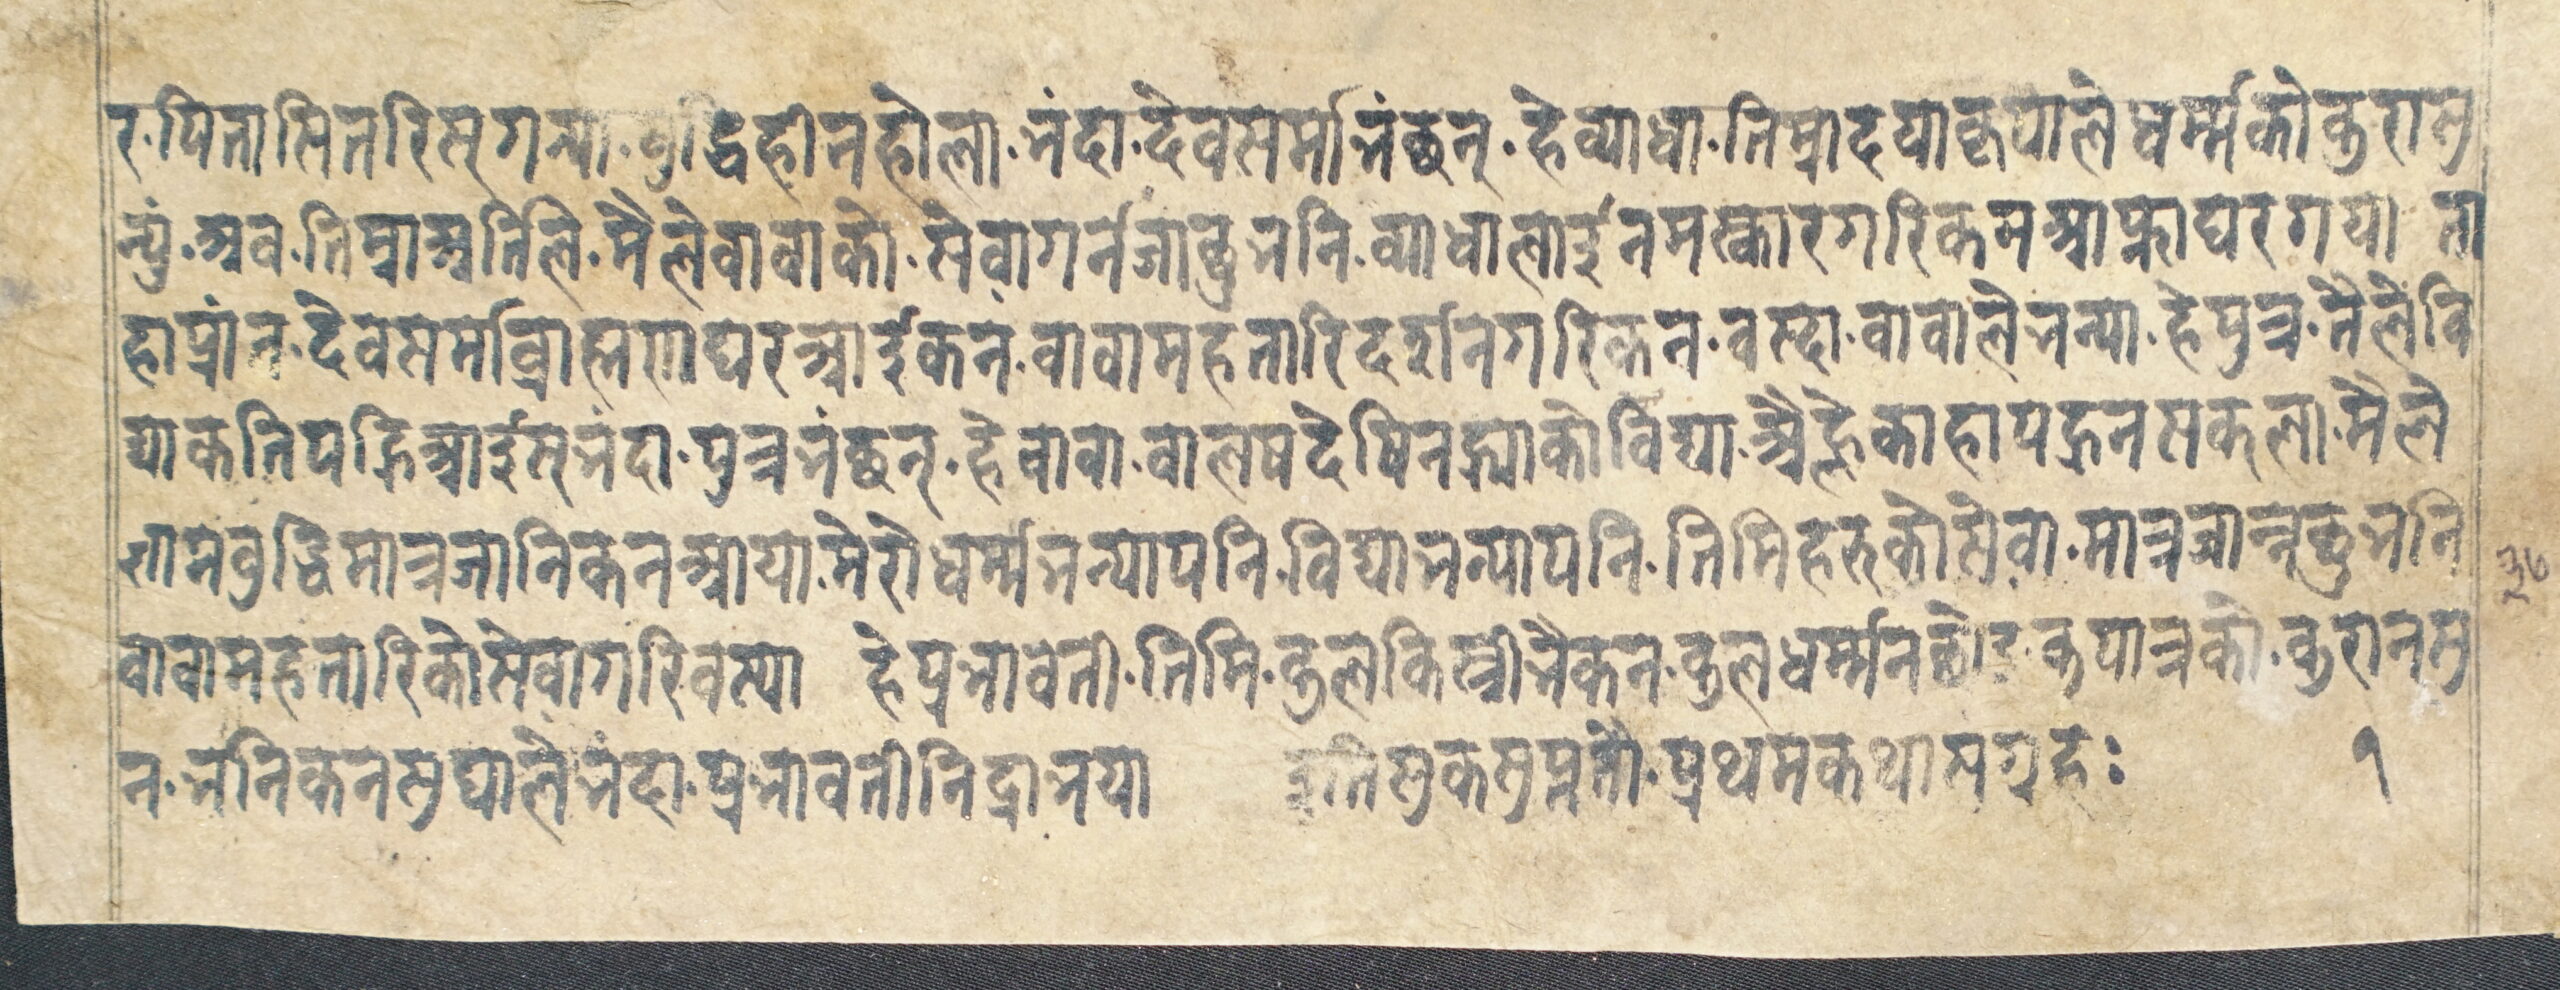 र.पितासित रिस् गन्या.बुद्धिहीन होला.भंदा.देवसर्मा भंछन्.हे व्याधा.तिम्रा दयाकृपाले धर्म्मको कुरा सु
न्युं.अव.तिम्रा अतिलि.मैले वावाको.सेवा गर्न जांछु भनि.व्याधालाई नमस्कार गरिकन आफ्ना घर गया ता
हा प्रांत.देवसर्मा व्राह्मण घर आईकन.वावा महतारि दर्शन गरिकन.वस्दा.वावाले भन्या.हे पुत्र.तैले वि
द्या कति पढि आईस् भंदा.पुत्र भंछन्.हे वावा.वालषदेषि नपढ्याको विद्या.अैह्ले काहा पढ्न सकूला.मैले
ज्ञान वुद्धि मात्र जानिकन आया.मेरो धर्म्म भन्या पनि.विद्या भन्या पनि.तिमिहरुको सेवा.मात्र जान्नछु भनि
वावा महतारिको सेवा गरि वस्या हे प्रभावती.तिमि.कुलकि स्त्री भैकन.कुलधर्म्म नछोड कुपात्रको.कुरा नसु
न.भनिकन सुघाले भंदा.प्रभावती निद्रा भया इति सुकसप्ततौ.प्रथमकथा सग्रहः १
३७